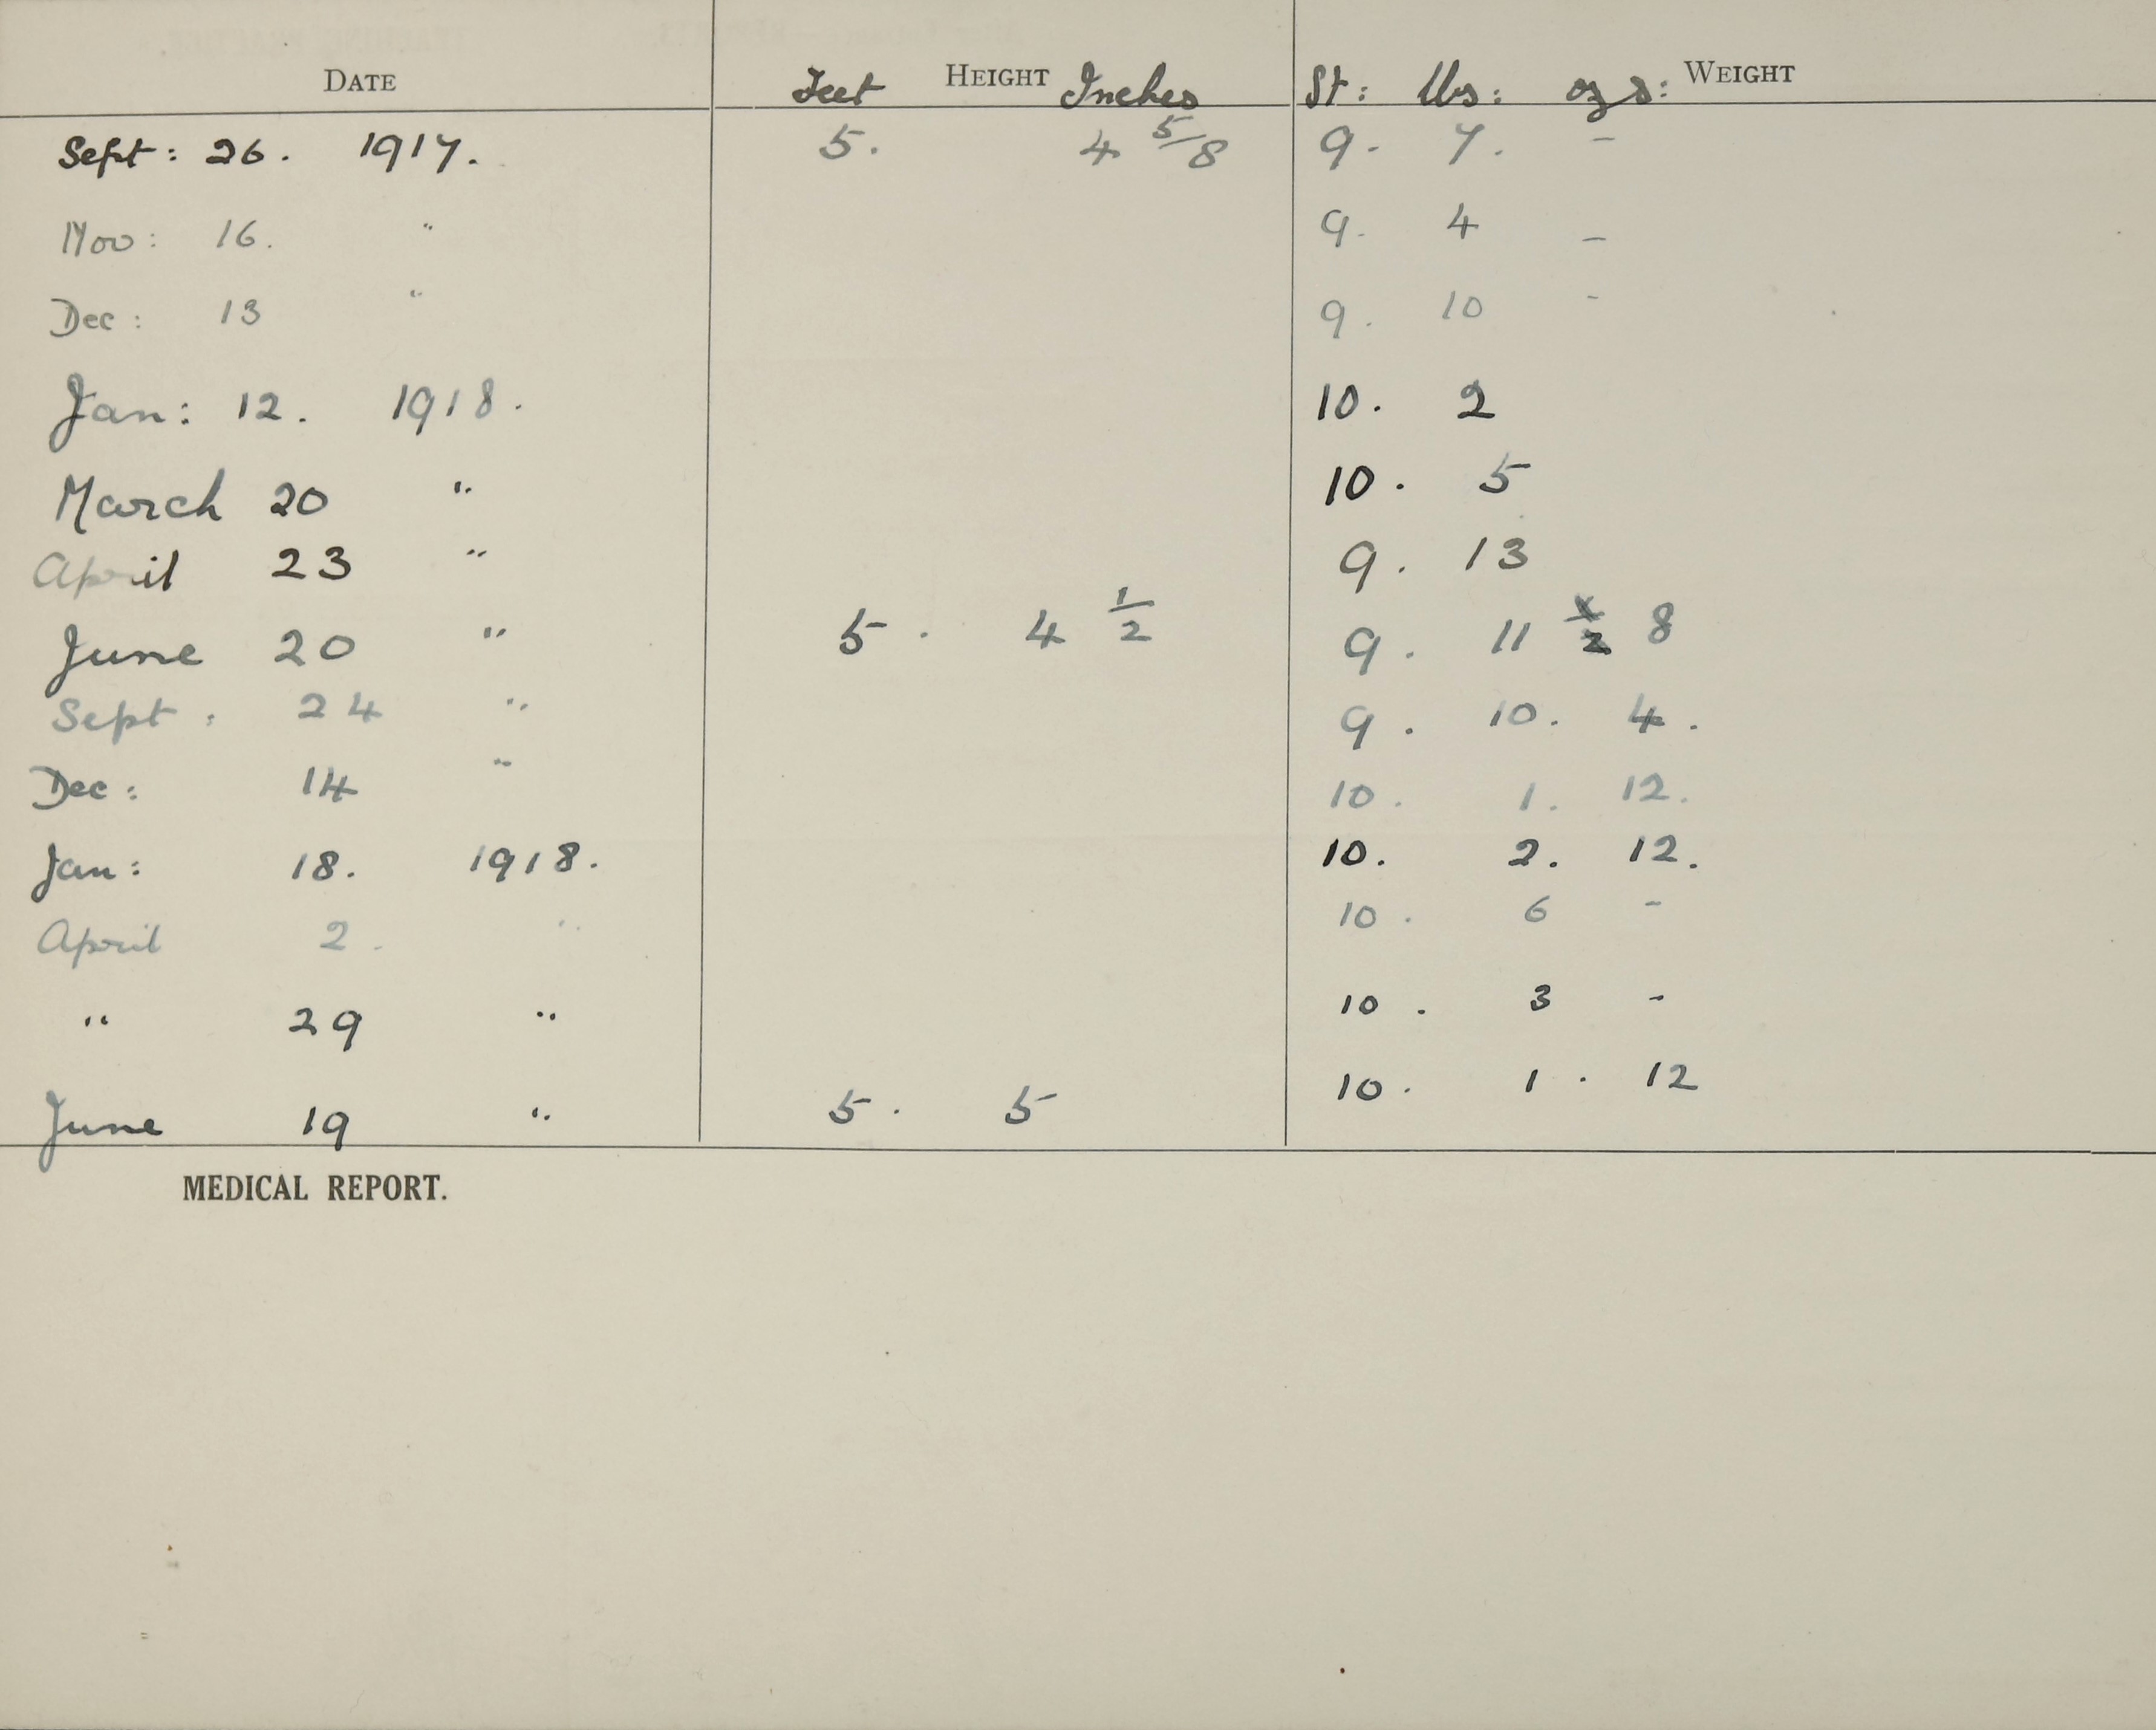 DATE Feet HEIGHT Inches St: lbs: ozs: WEIGHT
Sept: 26. 1917. 5. 4 5/8 9. 7. -
Nov: 16. " 9. 4 -
Dec: 13 " 9. 10 -
Jan: 12. 1918. 10. 2
March 20 " 10. 5
April 23 " 9. 13
June 20 " 5. 4 1/2 9. 11 1/2 8
Sept: 24 " 9. 10. 4.
Dec: 14 " 10. 1. 12.
Jan: 18. 1918. 10. 2. 12.
April 2. " 10. 6 -
" 29 " 10. 3 -
June 19 " 5. 5 10. 1. 12
MEDICAL REPORT.